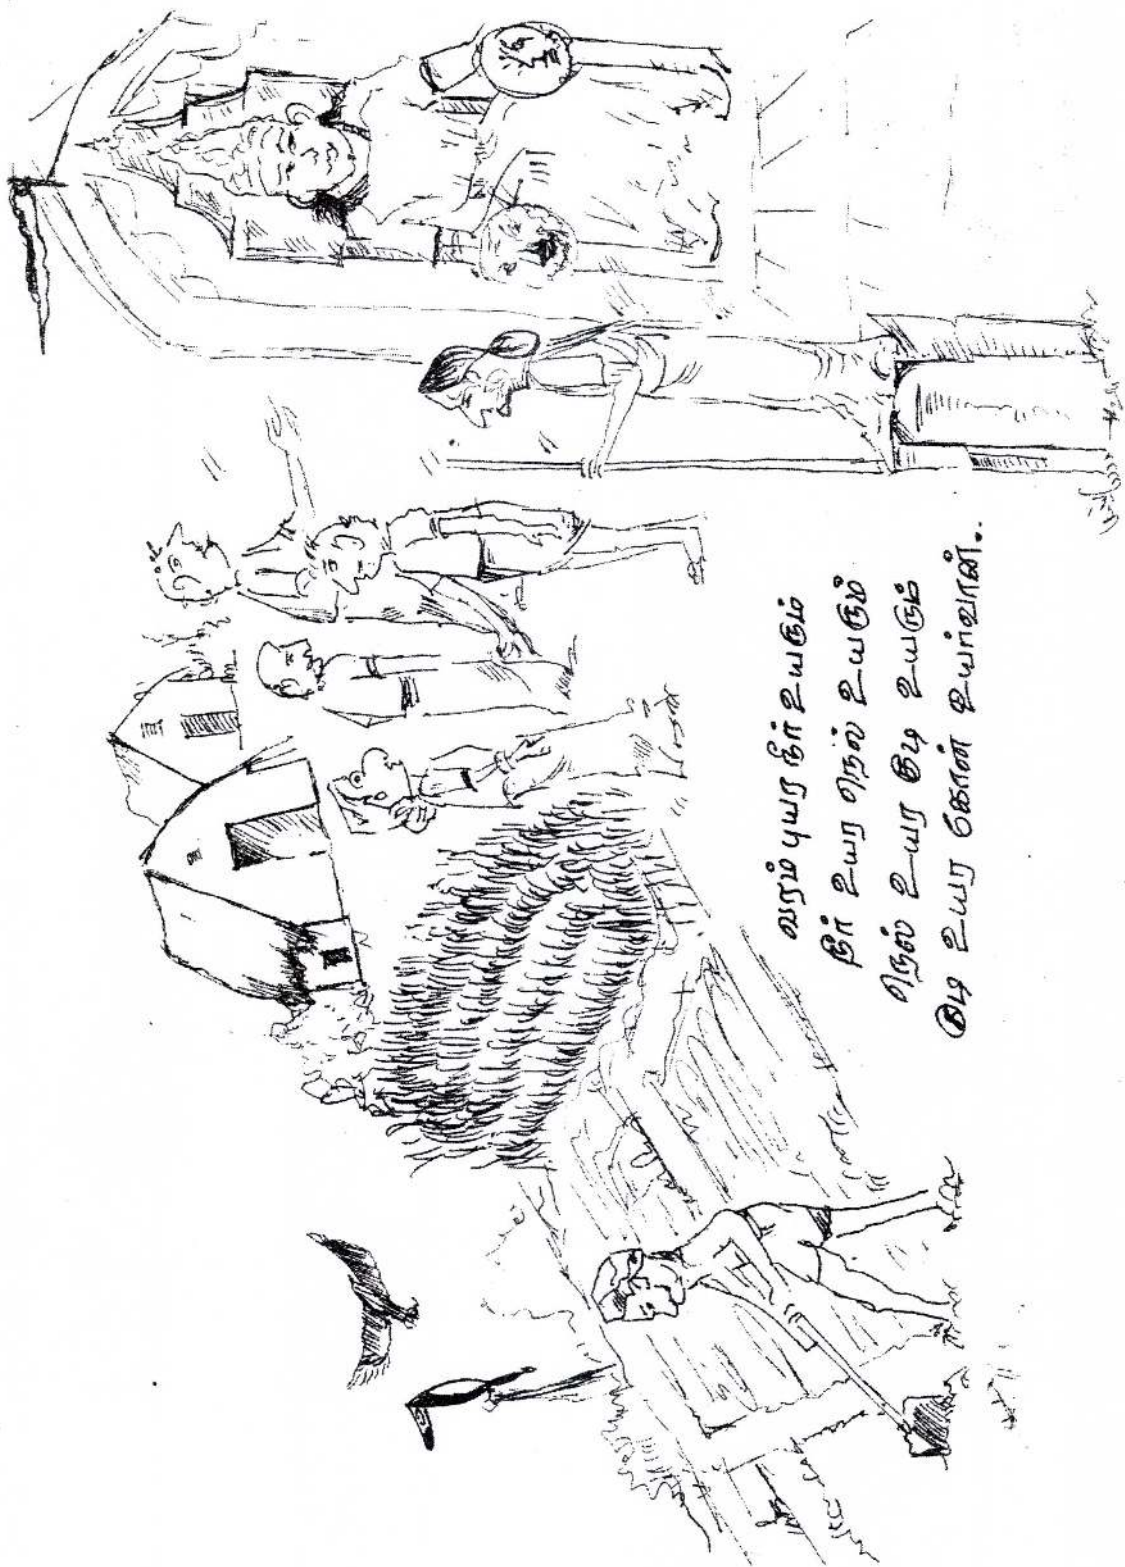 வரம்புயர நீர் உயரும்
நீர் உயர நெல் உயரும்
நெல் உயர குடி உயரும்
குடி உயர கோன் உயர்வான்.